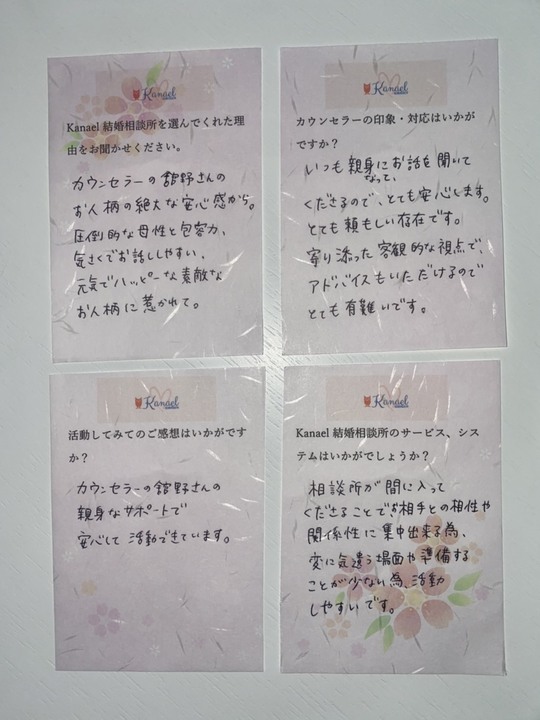 Kanael
Kanael 結婚相談所を選んでくれた理
由をお聞かせください。
カウンセラーの舘野さんの
お人柄の絶大な安心感から。
圧倒的な母性と包容力、
気さくでお話ししやすい、
元気でハッピーな素敵な
お人柄に惹かれて。
Kanael
カウンセラーの印象・対応はいかが
ですか?
いつも親身にお話を聞いて
なって、
くださるので、とても安心します。
とても頼もしい存在です。
寄り添った客観的な視点で、
アドバイスもいただけるので
とても有難いです。
Kanael
活動してみてのご感想はいかがです
か?
カウンセラーの舘野さんの
親身なサポートで
安心して活動できています。
Kanael
Kanael 結婚相談所のサービス、シス
テムはいかがでしょうか?
相談所が間に入って
くださることでお相手との相性や
関係性に集中出来る為、
変に気遣う場面や準備する
ことが少ない為、活動
しやすいです。